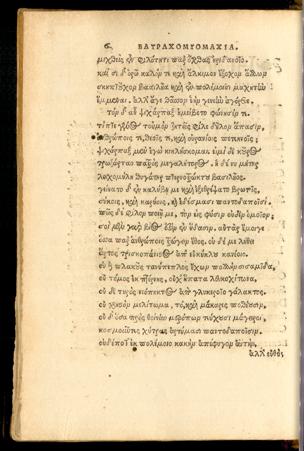 6 ΒΑΤΡΑΧΟΜΥΟΜΑΧΙΑ.
μιχθεὶς ἐν φιλότητι παρ' ὄχθας ἠριδανοῖο.
καὶ σὲ δ' ὁρῶ καλόν τε καὶ ἄλκιμον ἔξοχον ἄλλων
σκηπτοῦχον βασιλῆα καὶ ἐν πολέμοισι μαχητὴν
ἔμμεναι. ἀλλ' ἄγε θᾶσσον ἑὴν γενεὴν ἀγόρευε.
τὸν δ' αὖ ψιχάρπαξ ἀμείβετο φώνησέν τε.
τίπτε γένος τοὐμὸν ζητεῖς φίλε δῆλον ἅπασιν,
ἀνθρώποις τε, θεοῖς τε, καὶ οὐρανίοις πετεινοῖς;
ψιχάρπαξ μὲν ἐγὼ κικλήσκομαι. εἰμὶ δὲ κοῦρος
τρωξάρταο πατρὸς μεγαλήτορος. ἡ δέ νυ μήτηρ
λειχομύλη θυγάτηρ πτερνοτρώκτου βασιλῆος.
γείνατο δ' ἐν καλύβῃ με καὶ ἐξεθρέψατο βρωτοῖς,
σύκοις, καὶ καρύοις, καὶ ἐδέσμασι παντοδαποῖσι.
πῶς δὲ φίλον ποιῇ με, τὸν εἰς φύσιν οὐδὲν ὁμοῖον;
σοὶ μὲν γὰρ βίος ἐστὶν ἐν ὕδασιν. αὐτὰρ ἔμοιγε
ὅσα παρ' ἀνθρώποις τρώγειν ἔθος. οὐδέ με λήθει
ἄρτος τρισκοπάνιστος ἀπ' εὐκύκλου κανέοιο.
οὐδὲ πλακοῦς τανύπεπλος ἔχων πολλὴν σισαμίδα,
οὐ τόμος ἐκ πτέρνης, οὐχ ἥπατα λευκοχίτωνα,
οὐδὲ τυρὸς νεόπηκτος ἀπὸ γλυκεροῖο γάλακτος,
οὐ χρηστὸν μελίτωμα, τὸ καὶ μάκαρες ποθέουσιν,
οὐδ' ὅσα πρὸς θοίνην μερόπων τεύχουσι μάγειροι,
κοσμοῦντες χύτρας ἀρτύμασι παντοδαποῖσιν.
οὐδέποτ' ἐκ πολέμοιο κακὴν ἀπέφυγον ἀϋτήν.
ἀλλ' εὐθὺς